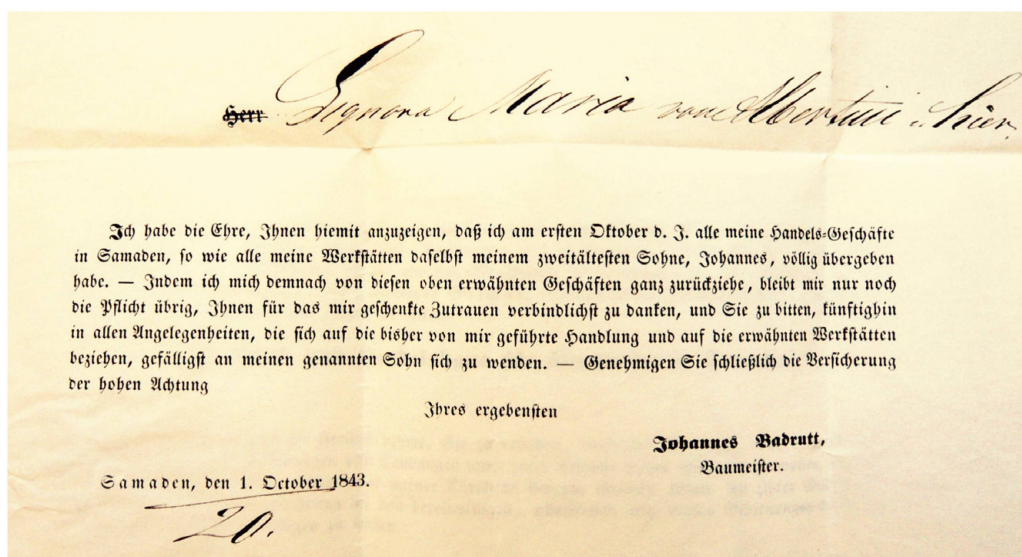 Herr Signora Maria von Albertini. Hier.
Ich habe die Ehre, Ihnen hiemit anzuzeigen, daß ich am ersten Oktober d. J. alle meine Handels-Geschäfte
in Samaden, so wie alle meine Werkstätten daselbst meinem zweitältesten Sohne, Johannes, völlig übergeben
habe. — Indem ich mich demnach von diesen oben erwähnten Geschäften ganz zurückziehe, bleibt mir nur noch
die Pflicht übrig, Ihnen für das mir geschenkte Zutrauen verbindlichst zu danken, und Sie zu bitten, künftighin
in allen Angelegenheiten, die sich auf die bisher von mir geführte Handlung und auf die erwähnten Werkstätten
beziehen, gefälligst an meinen genannten Sohn sich zu wenden. — Genehmigen Sie schließlich die Versicherung
der hohen Achtung
Ihres ergebensten
Johannes Badrutt,
Baumeister.
Samaden, den 1. October 1843.
20.